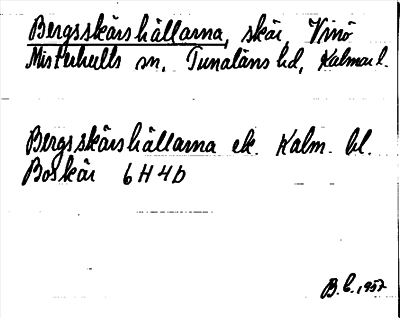 Bergsskärshällarna, skär Vinö
Misterhults sn, Tunaläns hd, Kalmar l.
Bergsskärshällarna ek. Kalm. bl.
Boskär 6H4b
B.C. 1957